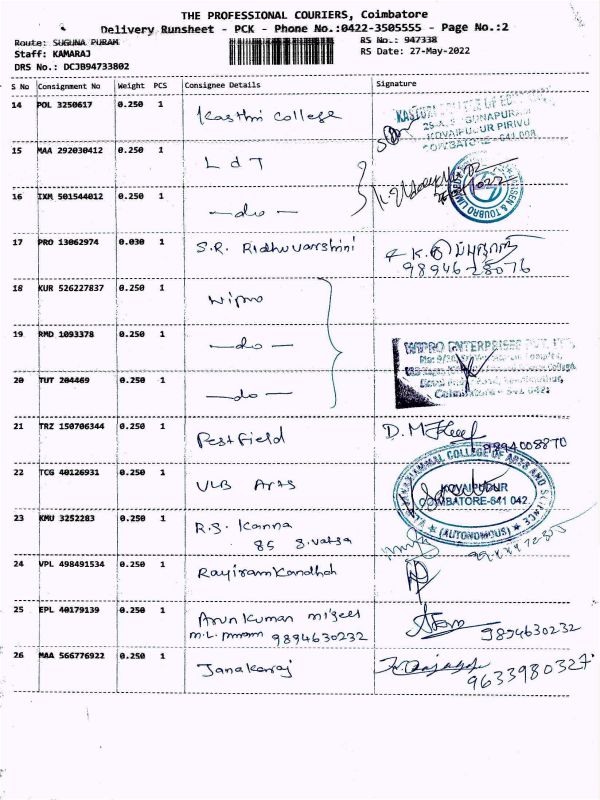 THE PROFESSIONAL COURIERS, Coimbatore
Delivery Runsheet - PCK - Phone No.:0422-3505555 - Page No.:2
Route: SUGUNA PURAM
RS No.: 947338
Staff: KAMARAJ
RS Date: 27-May-2022
DRS No.: DCJB94733802
S No Consignment No Weight PCS Consignee Details Signature
14 POL 3250617 0.250 1 Kasthri College
KOVAIPUDUR PIRIVU
COIMBATORE - 641 008
15 MAA 292030412 0.250 1 L d T
16 IXM 501544012 0.250 1 -do-
17 PRO 13062974 0.030 1 S.R. Ridhuvarshini
9894628076
18 KUR 526227837 0.250 1 Wipro
19 RMD 1093378 0.250 1 -do-
WIPRO ENTERPRISES PVT. LTD.
20 TUT 204469 0.250 1 -do-
21 TRZ 150706344 0.250 1 Pestfield
9894008870
22 TCG 40126931 0.250 1 VLB Arts
COLLEGE OF ARTS AND SCIENCE
KOVAIPUDUR
COIMBATORE-641 042.
(AUTONOMOUS)
23 KMU 3252283 0.250 1 R.S. Kanna
85 Sivatsa
24 VPL 498491534 0.250 1 Rayiramkandhah
25 EPL 40179139 0.250 1 Arunkumar
9894630232
9894630232
26 MAA 566776922 0.250 1 Janakaraj
9633980327